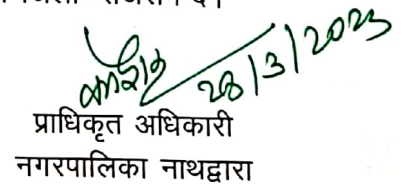 28/3/2023
प्राधिकृत अधिकारी
नगरपालिका नाथद्वारा